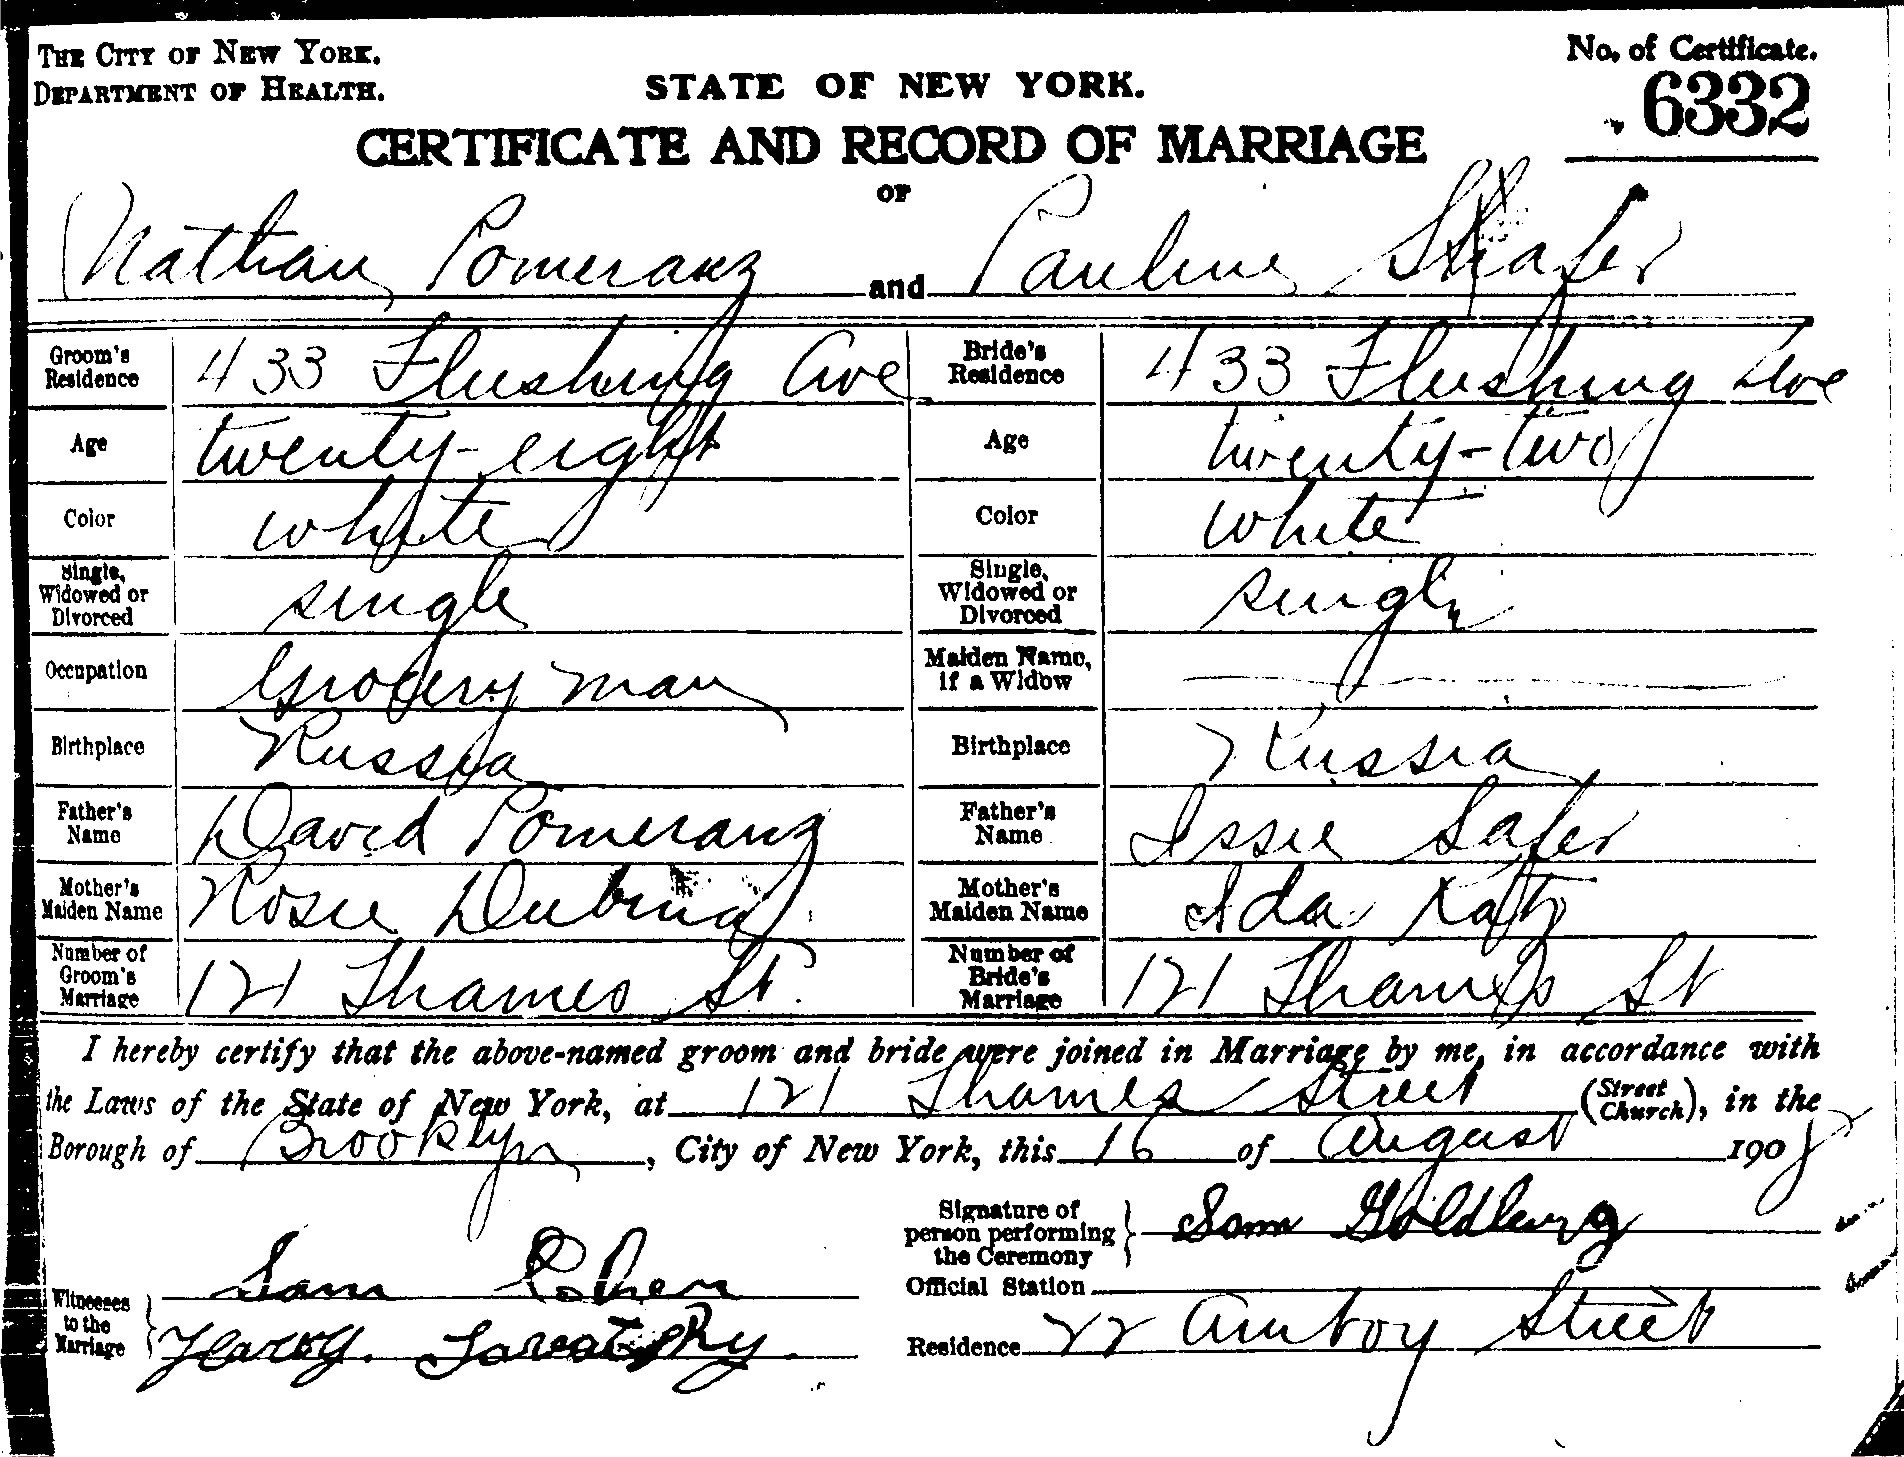 THE CITY OF NEW YORK.
DEPARTMENT OF HEALTH.
No. of Certificate.
6332
STATE OF NEW YORK.
CERTIFICATE AND RECORD OF MARRIAGE
OF
Nathan Pomeranz and Pauline Shafer
Groom's Residence 433 Flushing Ave Bride's Residence 433 Flushing Ave
Age twenty-eight Age twenty-two
Color white Color white
Single, Widowed or Divorced single Single, Widowed or Divorced single
Occupation Grocery man Maiden Name, if a Widow
Birthplace Russia Birthplace Russia
Father's Name David Pomeranz Father's Name Issie Safer
Mother's Maiden Name Rosie Dubina Mother's Maiden Name Ida Katz
Number of Groom's Marriage 121 Thames St. Number of Bride's Marriage 121 Thames St
I hereby certify that the above-named groom and bride were joined in Marriage by me, in accordance with
the Laws of the State of New York, at 121 Thames Street (Street Church), in the
Borough of Brooklyn, City of New York, this 16 of August 190
Signature of person performing the Ceremony Sam Goldberg
Official Station
Witnesses to the Marriage Sam Cohen
Harry
Residence 22 Amboy Street